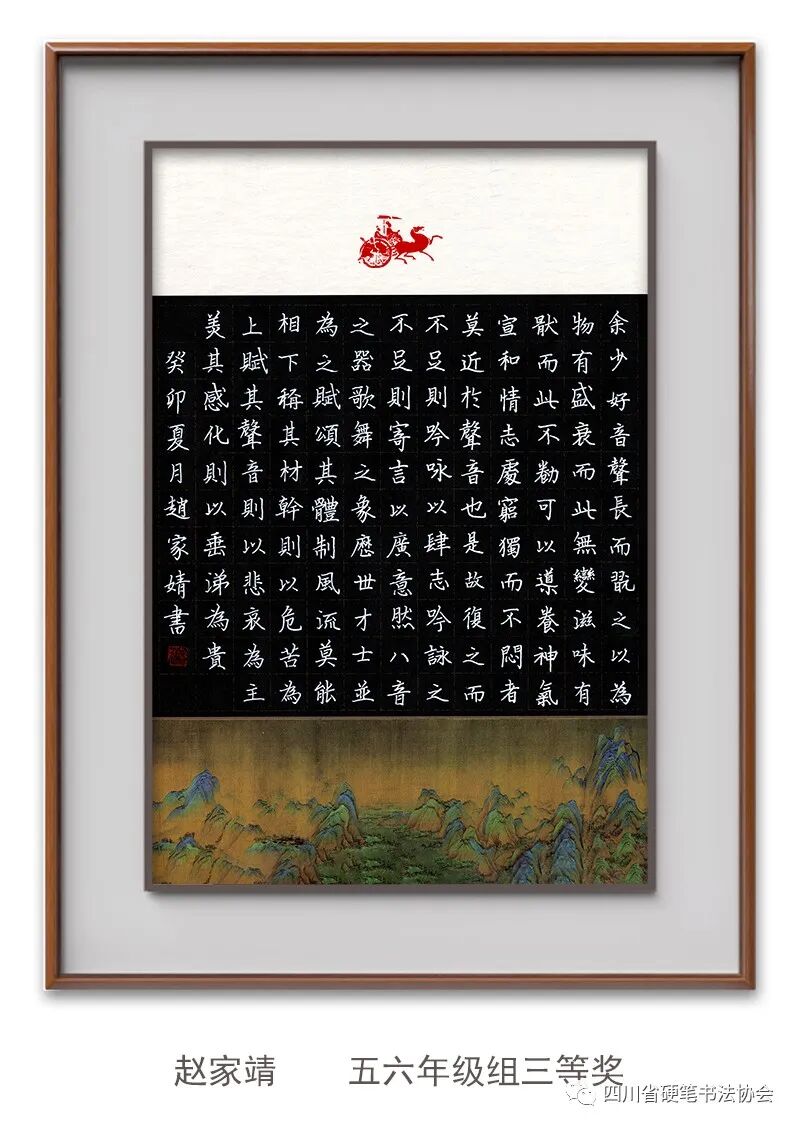 余少好音聲長而翫之以為
物有盛衰而此無變滋味有
猒而此不勌可以導養神氣
宣和情志處窮獨而不悶者
莫近於聲音也是故復之而
不足則吟咏以肆志吟詠之
不足則寄言以廣意然八音
之器歌舞之象歷世才士並
為之賦頌其體制風流莫能
相下稱其材幹則以危苦為
上賦其聲音則以悲哀為主
羙其感化則以垂涕為貴
癸卯夏月趙家婧書
赵家靖 五六年级组三等奖
四川省硬笔书法协会